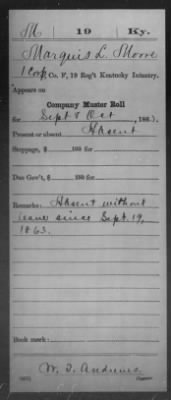 M 19 Ky.
Marquis L. Moore
1 Corp, Co. F, 19 Reg't Kentucky Infantry.
Appears on
Company Muster Roll
for Sept & Oct, 1863.
Present or absent Absent
Stoppage, $ 100 for
Due Gov't, $ 100 for
Remarks: Absent without
leave since Sept. 19,
1863.
Book mark:
W. T. Andrews